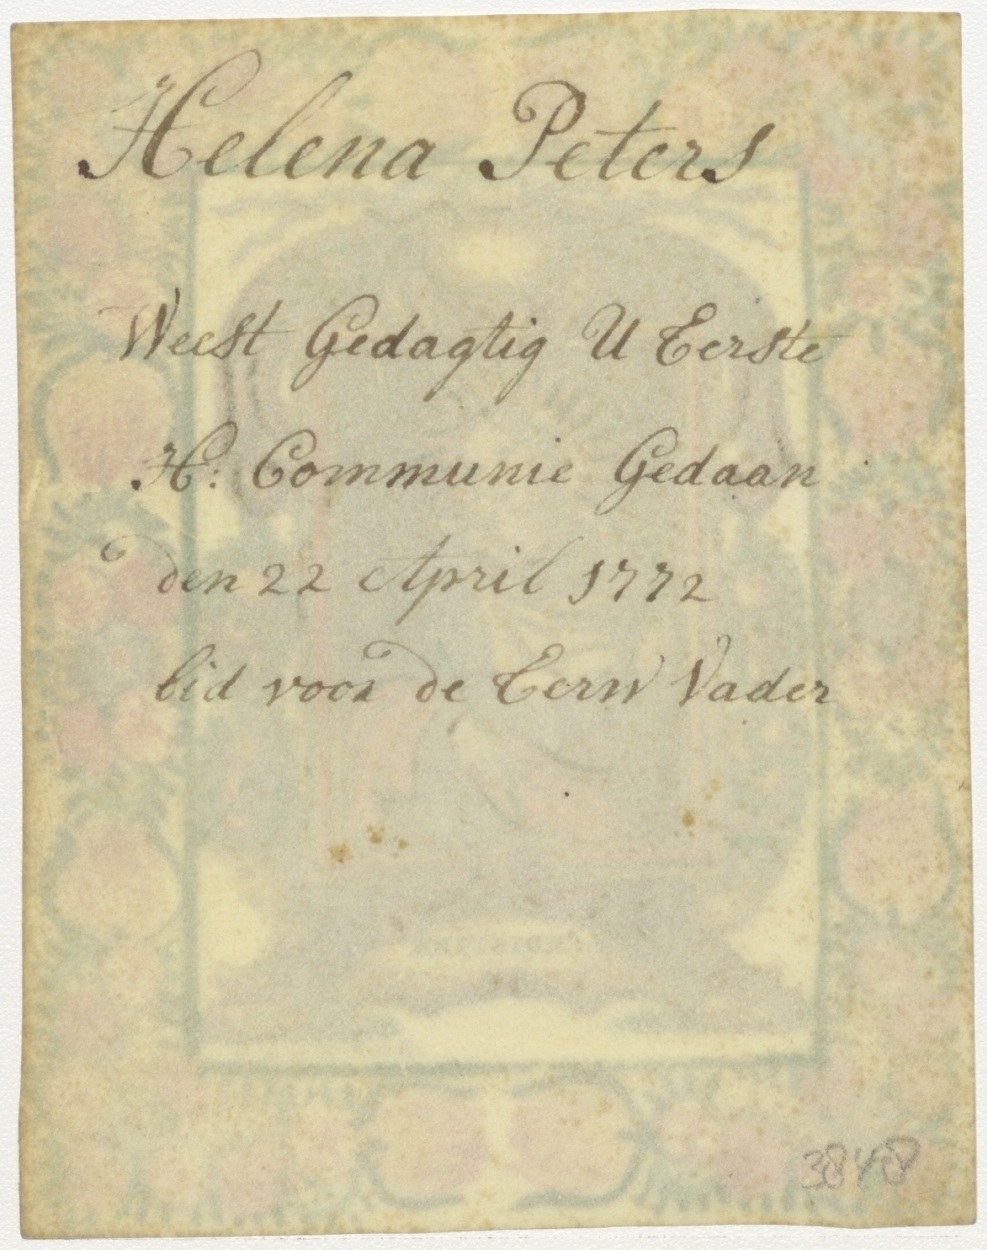 Helena Peters
Weest Gedagtig U Eerste
H: Communie Gedaan
den 22 April 1772
bid voor de Eerw Vader
3848